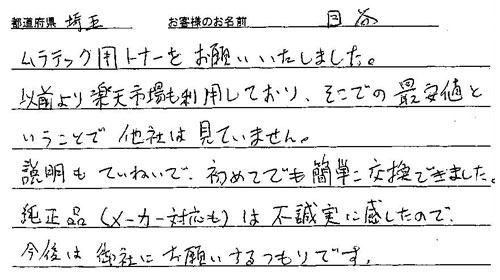 都道府県 埼玉 お客様のお名前 日谷
ムラテック用トナーをお願いいたしました。
以前より楽天市場も利用しており、そこでの最安値と
いうことで他社は見ていません。
説明もていねいで、初めてでも簡単に交換できました。
純正品(メーカー対応も)は不誠実に感じたので、
今後は御社にお願いするつもりです。